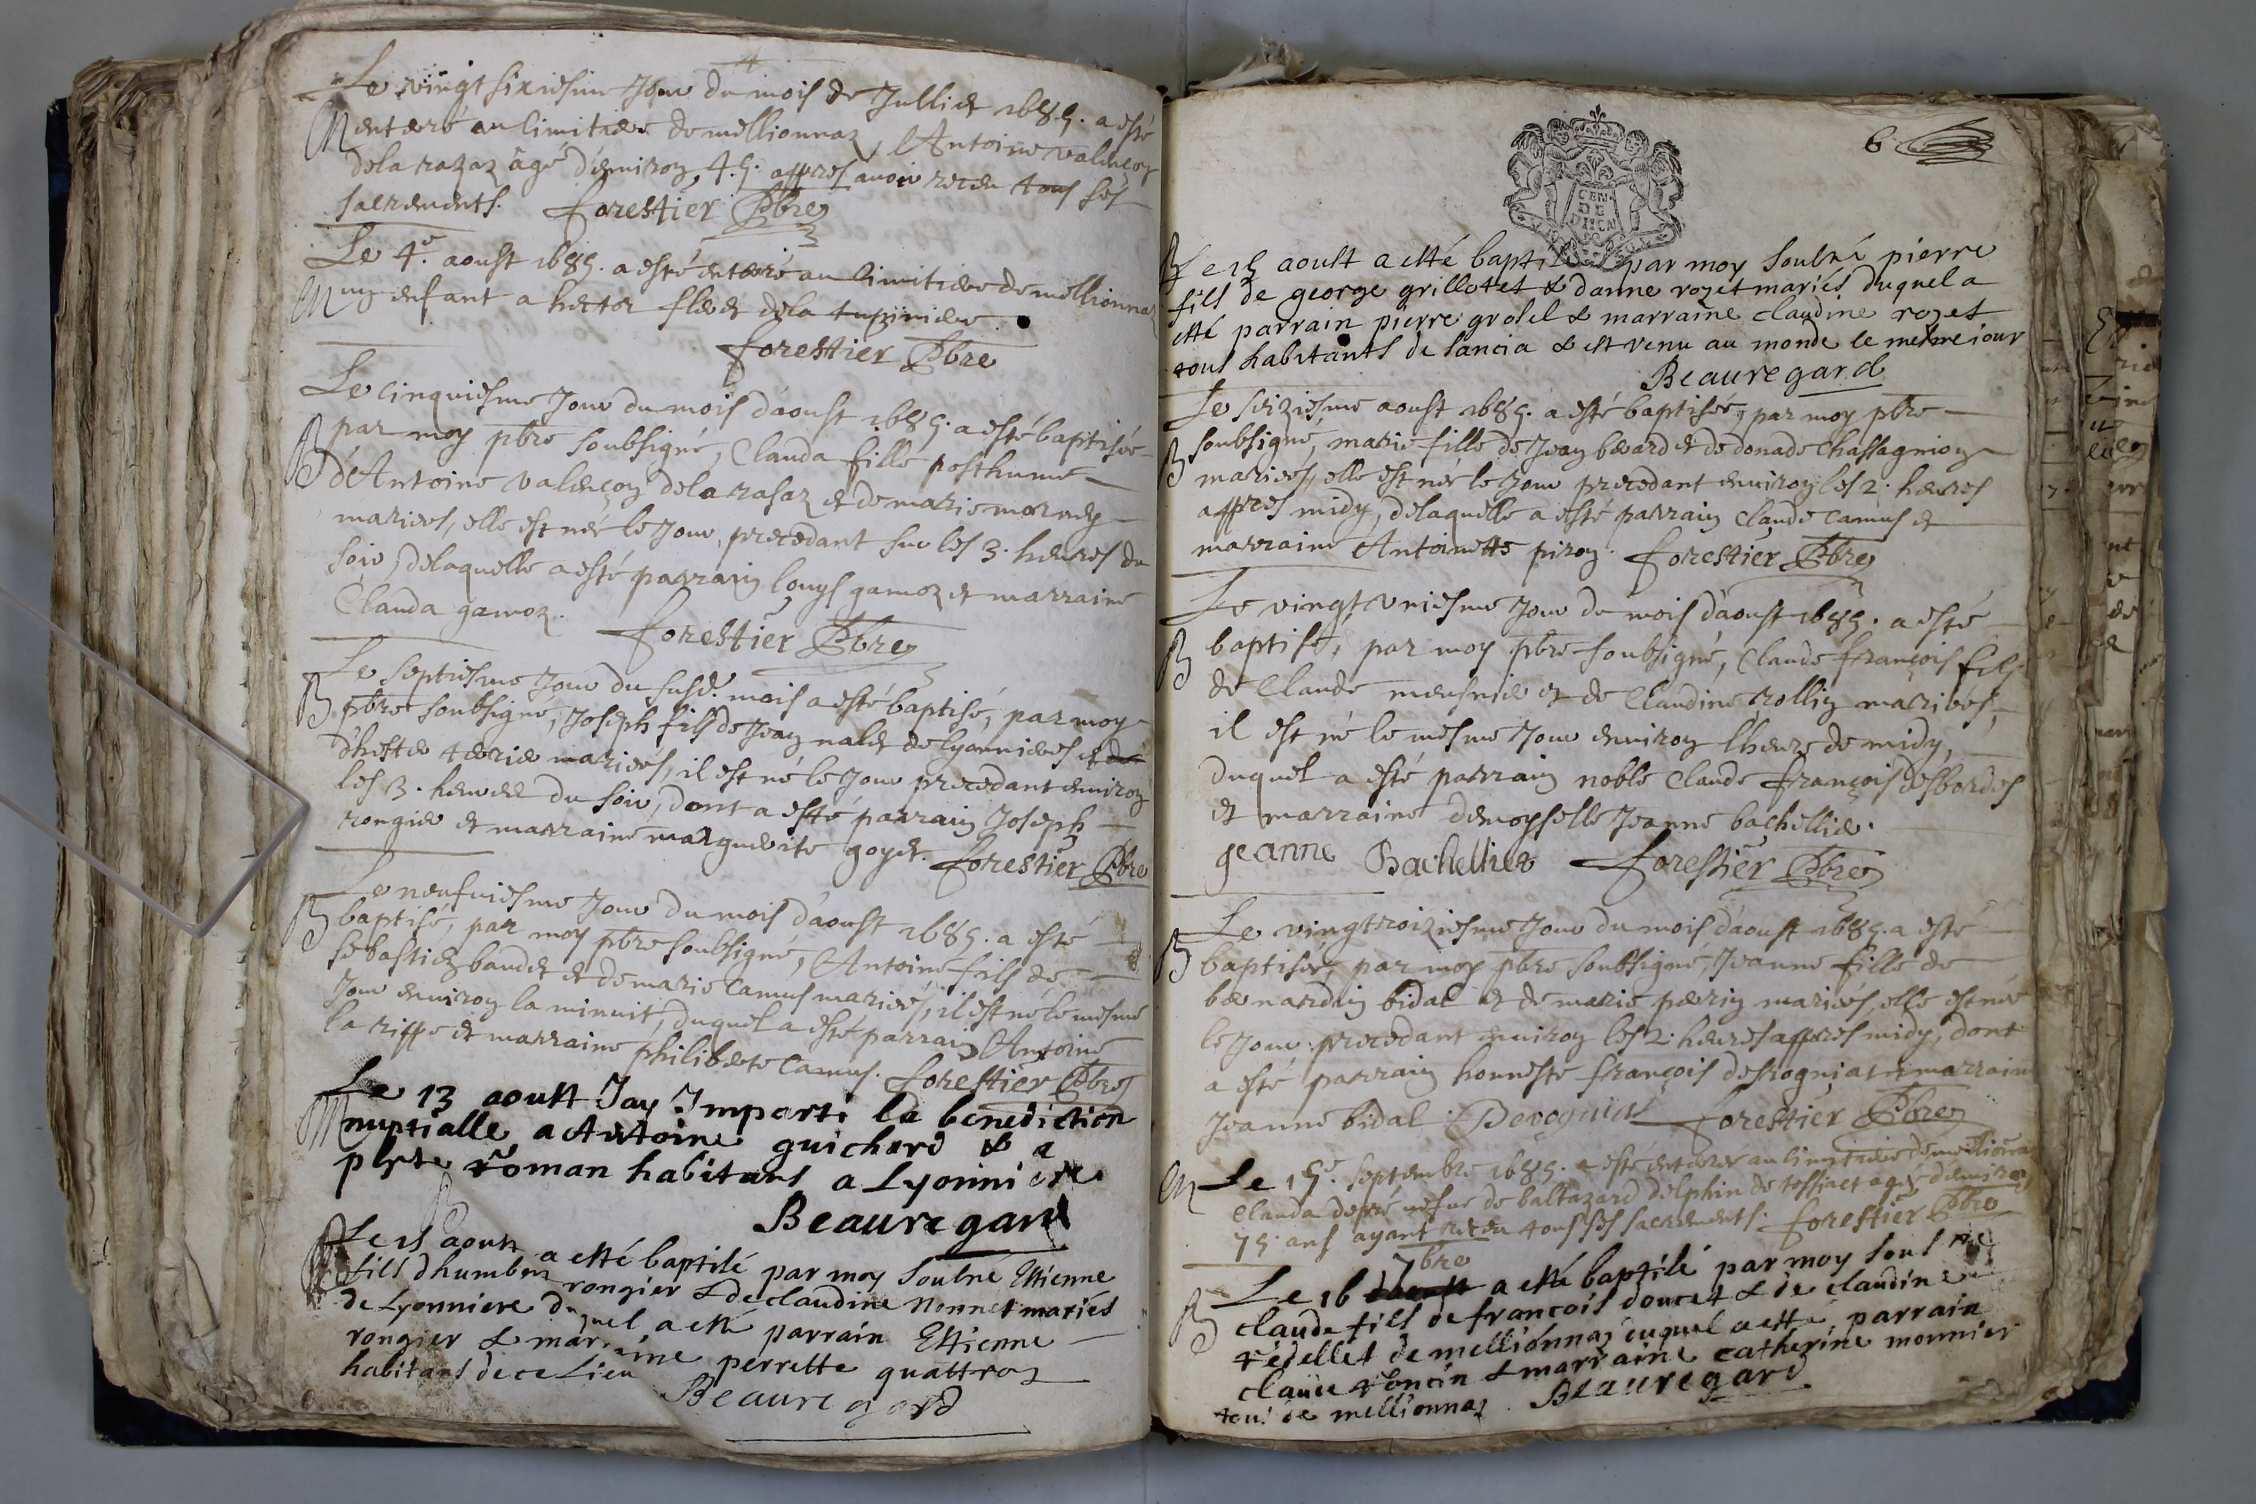 Le vingt sixiesme Jour du mois de Julliet 1685. a esté
M enteré au cimitiere de mellionnaz, Antoine valençon
dela razaz âgé d'enuiron 45. appres auoir receu tous ses
sacrements. forestier Pbre
Le 4e. aoust 1685. a esté enteré au cimitiere de mellionnaz
M un enfant a hector de la
forestier Pbre
Le cinquiesme Jour du mois d'aoust 1685. a esté baptisée
par moy pbre soubsigné, Clauda fille posthume
B d'Antoine valençon dela rasaz et de marie
mariees, elle est née le Jour precedant sur les 3. heures du
soir, delaquelle a esté parrain louys gamoz et marraine
Clauda gamoz. forestier Pbre
Le septiesme Jour du susd. mois a esté baptisé, par moy
B pbre soubsigné, Joseph fils de Jean nalet de lyonnieres et
d'hester mariees, il est né le Jour precedant enuiron
les 3. heures du soir, dont a esté parrain Joseph
rongier et marraine marguerite goyet. forestier Pbre
Le neufuiesme Jour du mois d'aoust 1685. a esté
B baptisé, par moy pbre soubsigné, Antoine fils de
sebastien baudet et de marie Camus mariees, il est né le mesme
Jour enuiron la minuit, duquel a esté parrain Antoine
la rippe et marraine philiberte Camus. forestier Pbre
Le 13 aoust Jay Imparti la benediction
M nuptialle a Antoine guichard & a
roman habitans a Lyonniere
Beauregard
Le 15 aoust a etté baptisé par moy soubné Ettienne
B fils dhumbert rongier & de claudine nonnet mariés
de Lyonniere duquel a etté parrain Ettienne
rongier & marraine perrette quattroz
habitans de ce Lieu
Beauregard
6
GEN
DE
DIJON
B Le 15 aoust a etté baptisé par moy soubné pierre
fils de george grillottet & danne rozet mariés duquel a
etté parrain pierre grosel & marraine claudine rozet
tous habitants de sancia & est venu au monde le mesme iour
Beauregard
Le seiziesme aoust 1685. a esté baptisée, par moy pbre
B soubsigné, marie fille de Jean berard et de donade Chassagnion
mariees, elle est née le Jour precedant enuiron les 2. heures
appres midy, delaquelle a esté parrain Claude Camus et
marraine Antoinette piron. forestier Pbre
Le vingt vniesme Jour du mois d'aoust 1685. a esté
B baptisé, par moy pbre soubsigné, Claude françois fils
de Claude meusnier et de Claudine rollin mariees,
il est né le mesme Jour enuiron l'heure de midy,
duquel a esté parrain noble Claude françois desbordes
et marraine demoyselle Jeanne bachellier.
geanne Bachellier forestier Pbre
Le vingtroiziesme Jour du mois d'aoust 1685. a esté
B baptisée, par moy pbre soubsigné, Jeanne fille de
bernardin bidal et de marie perrin mariees, elle est née
le Jour precedant enuiron les 2. heures appres midy, dont
a esté parrain honneste françois desrogniat et marraine
Jeanne bidal. forestier Pbre
M Le 15e. septembre 1685. a esté enterer au cimitiere de mellionna
Clauda vefue de baltazard delphin de tossiat agée d'enuiron
75. ans ayant receu tous ses sacrements. forestier Pbre
7bre
B Le 16 a etté baptisé par moy soubné
claude fils de francois doucet & de claudine
redellet de mellionnaz duquel a etté parrain
claude roncin & marraine catherine monnier
tous de mellionnaz. Beauregard